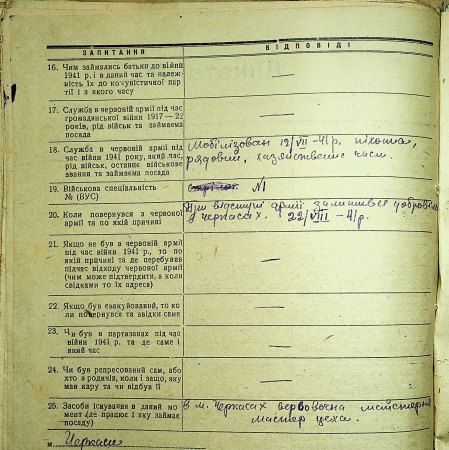 ЗАПИТАННЯ
ВІДПОВІДІ
16. Чим займались батьки до війни
1941 р. і в даний час та належ-
ність їх до комуністичної пар-
тії і з якого часу
—
17. Служба в червоній армії під час
громадянської війни 1917—22
років, рід військ та займаєма
посада
—
18. Служба в червоній армії під
час війни 1941 року, який час,
рід військ, останнє військове
звання та займаєма посада
Мобілізован 12/VII–41 р. піхота,
рядовий, хазяйственне части.
19. Військова спеціальність
№ (ВУС)
№1
20. Коли повернувся з червоної
армії та по якій причині
При відступі армії залишився добров
в Черкасах. 22/VIII–41 р.
21. Якщо не був в червоній армії
під час війни 1941 р., то по
якій причині та де перебував
підчас відходу червоної армії
(чим може підтвердити, а коли
свідками то їх адреса)
—
22. Якщо був евакуйований, то ко-
ли повернувся та звідки саме
—
23. Чи був в партизанах під час
війни 1941 р. та де саме і
який час
—
24. Чи був репресований сам, або
хто з родичів, коли і защо, яку
мав кару та чи відбув її
—
25. Засоби існування в даний мо-
мент (де працює і яку займає
посаду)
в м. Черкасах вервовочна майстерня
мастер цеха.
м. Черкаси